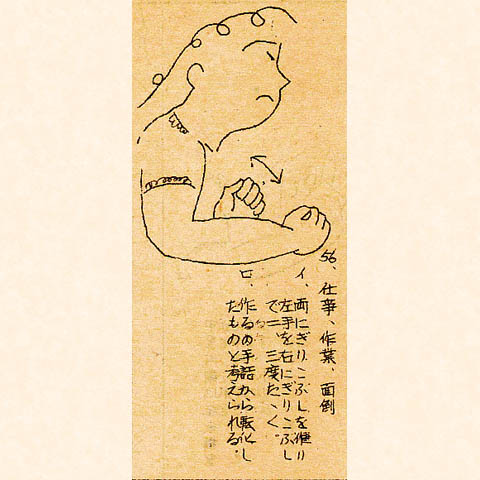 56、仕事、作業、面倒
イ、両にぎりこぶしを
左手を右にぎりこぶし
で二、三度たゝく。
ロ、作るの手話から転化し
たものと考えられる。